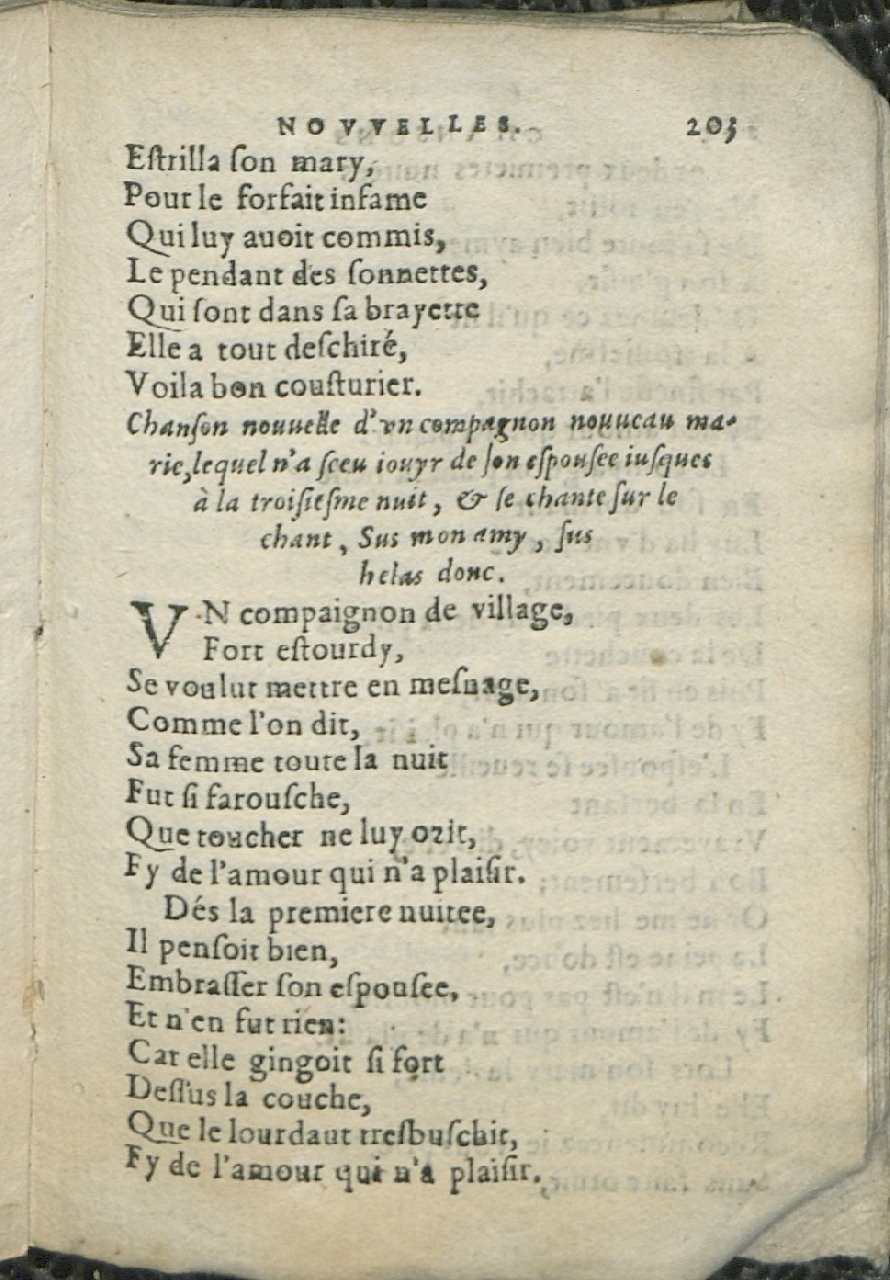 NOVVELLES. 203
Eſtrilla ſon mary,
Pour le forfait infame
Qui luy auoit commis,
Le pendant des ſonnettes,
Qui ſont dans ſa brayette
Elle a tout deſchiré,
Voila bon couſturier.
Chanſon nouuelle d'vn compagnon nouueau ma-
rie, lequel n'a ſceu iouyr de ſon eſpouſee iuſques
à la troiſieſme nuit, & ſe chante ſur le
chant, Sus mon amy, ſus
helas donc.
VN compaignon de village,
Fort eſtourdy,
Se voulut mettre en meſnage,
Comme l'on dit,
Sa femme toute la nuit
Fut ſi farouſche,
Que toucher ne luy ozit,
Fy de l'amour qui n'a plaiſir.
Dés la premiere nuitee,
Il penſoit bien,
Embraſſer ſon eſpouſee,
Et n'en fut rien:
Car elle gingoit ſi fort
Deſſus la couche,
Que le lourdaut treſbuſchit,
Fy de l'amour qui n'a plaiſir.